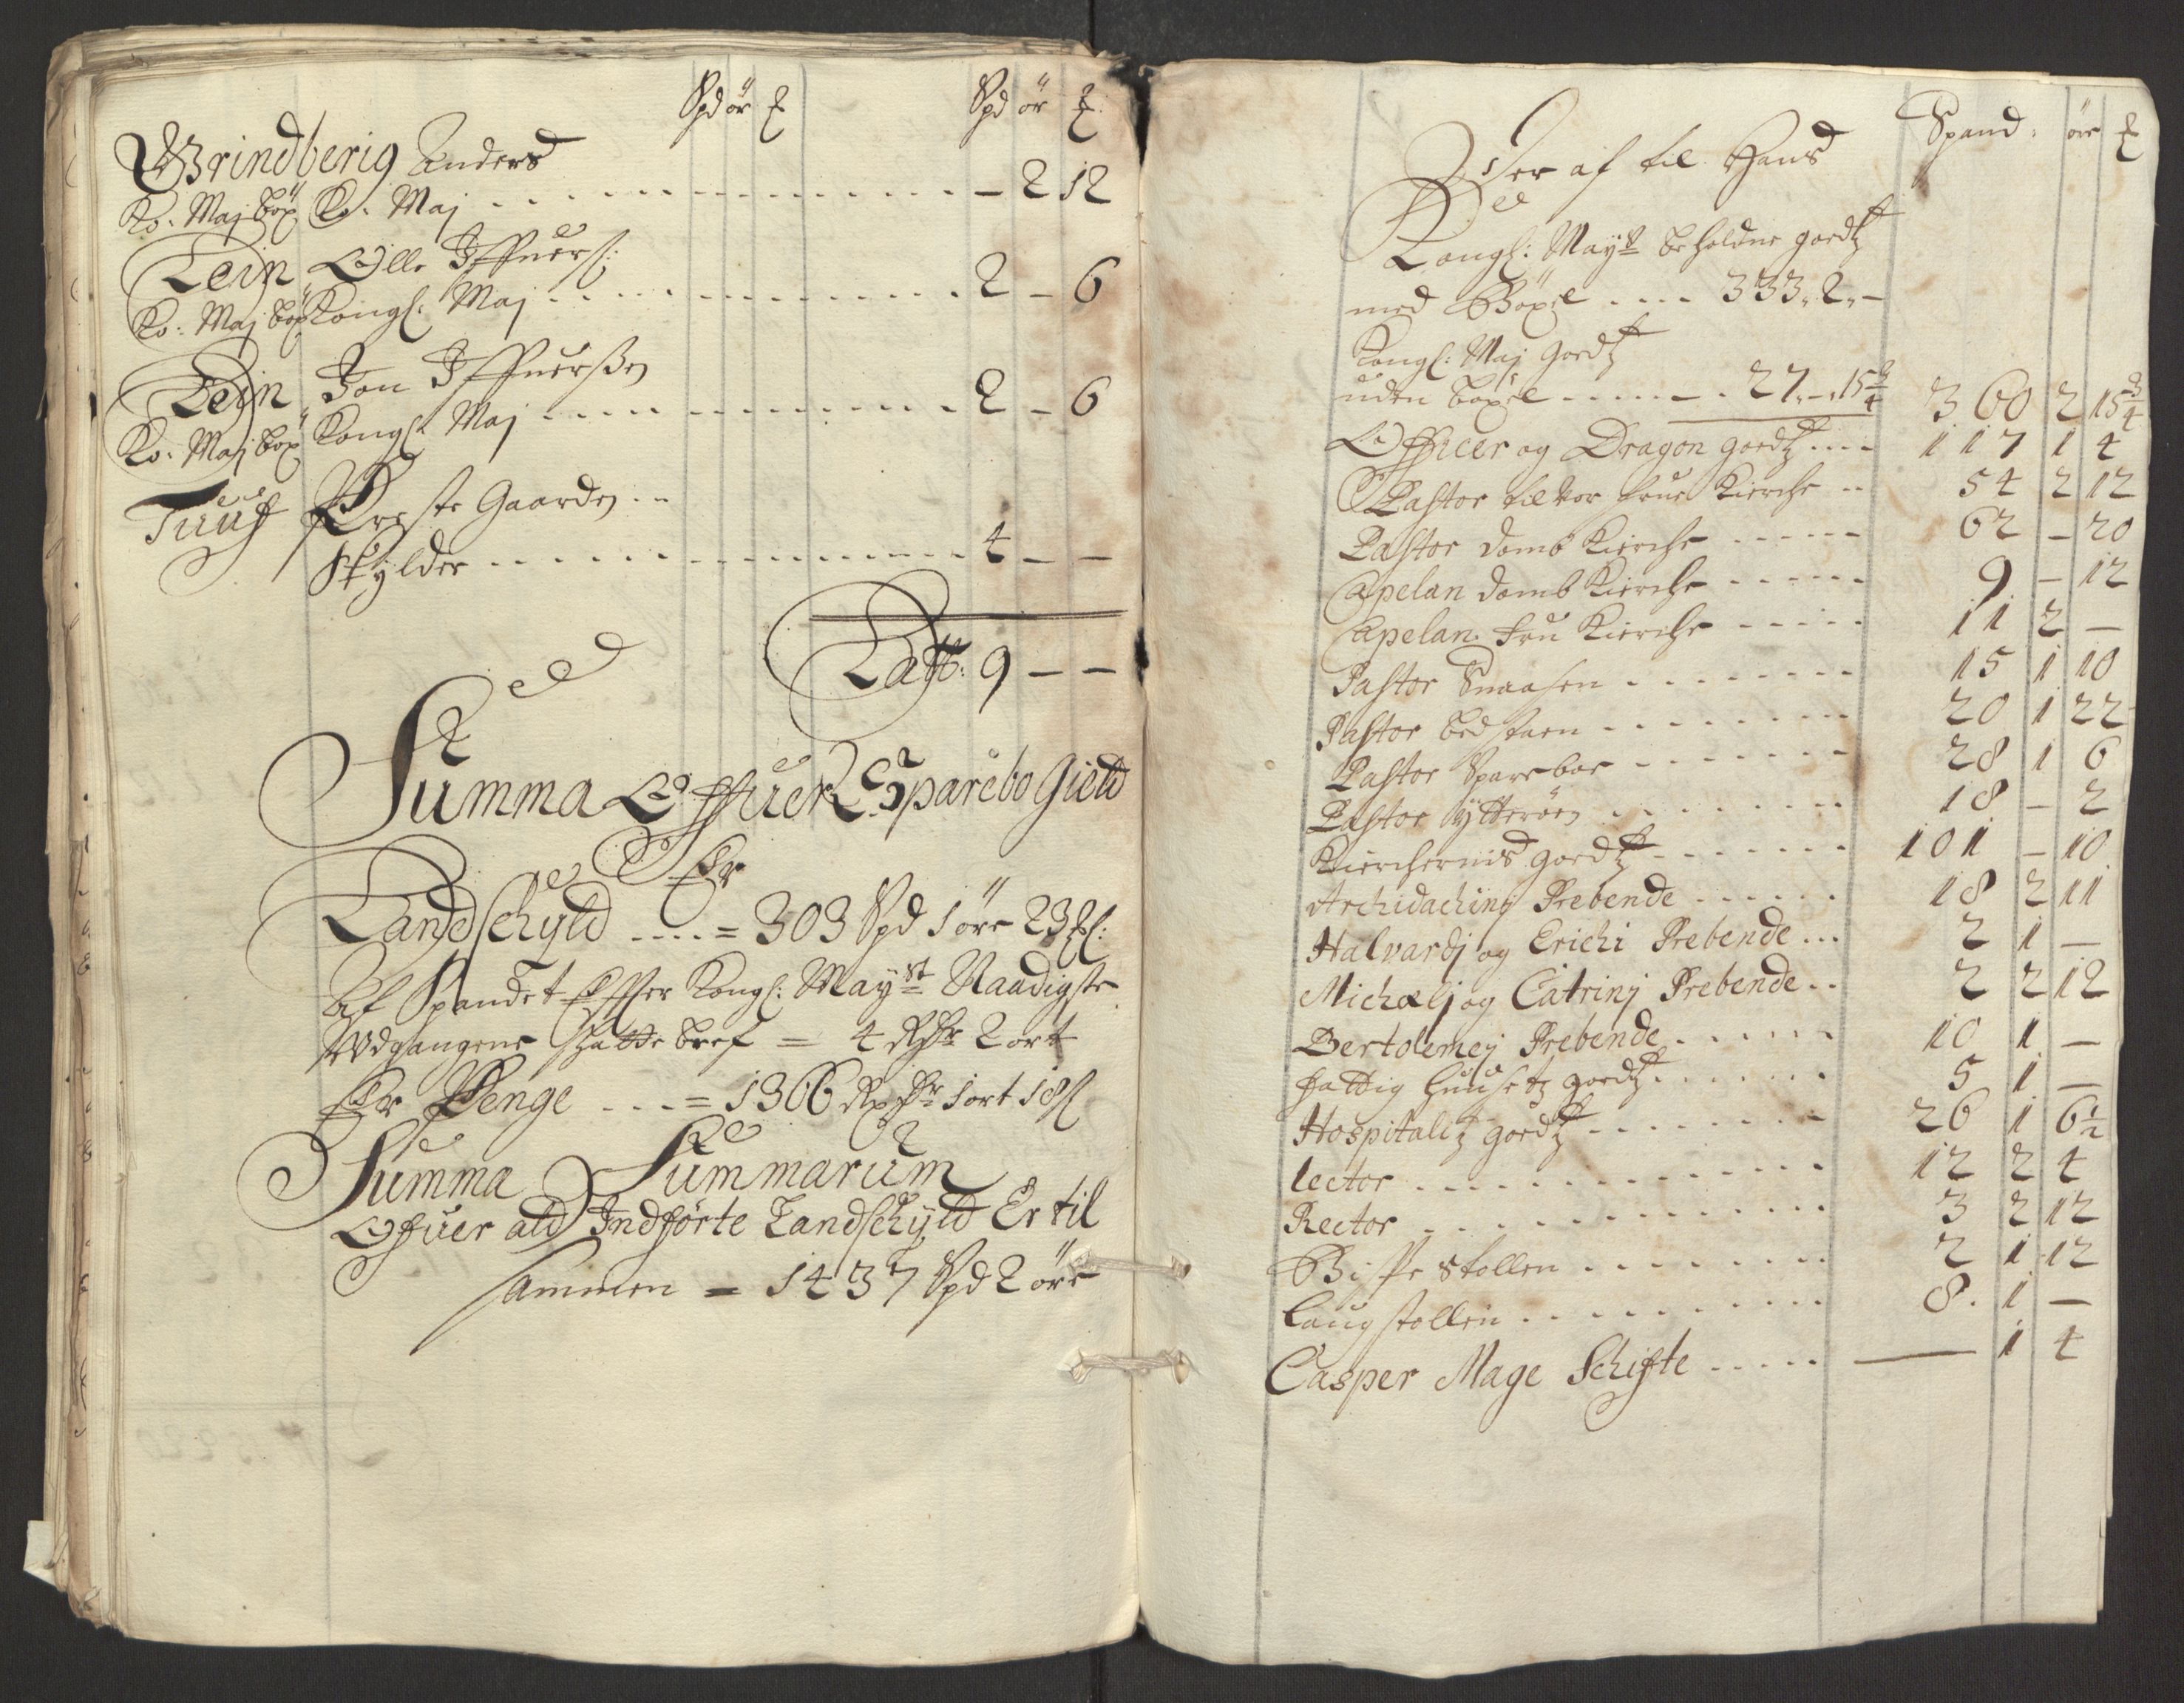 Spd ör ꝉ Spd ör ꝉ
Grindberig Anders
Ko: Maj böx Ko: Maj . . . . . . . . - 2 12
Lein Olle Iffuers:
Ko: Maj böx Kongl: Maj . . . . . . . . 2 - 6
Lein Jon Iffuersßen
Ko: Maj böx Kongl: Maj . . . . . . . . 2 - 6
Tuuf Preste Gaarden . .
Skylder . . . . . . . . 4 - -
Latt: 9 - -
Summa Offuer Sparebo Gield
Er
Landschyld . . . . = 303 Spd 1 öre 23 ꝉ:
Af Spandet Effter Kongl: Mayst Naadigste
Udgangene Schatte bref = 4 Rdr 2 ort
Er Penge . . . = 1366 Rxdr 1 ort 18 ꝉ
Summa Summarum
Ofuer ald Indförte Landschyld Er til
sammen = 1437 Spd 2 öre
Spand: öre ꝉ
Der af til Hans
Kongl: Mayts beholdne goedtz
med Böxel . . . . 333 „ 2 „ -
Kongl: Maj goedtz
uden böxel . . . . . 27 „ - „ 15 3/4 360 2 15 3/4
Officer og Dragon goedtz . . . . 117 1 4
Pastor til vor frue Kierche . . 54 2 12
Pastor domb Kierche . . . . . 62 - 20
Capelan domb Kierche . . . . . 9 - 12
Capelan fru Kierche . . . . . 11 2 -
Pastor Snaasen . . . . . . . . 15 1 10
Pastor bedstaen . . . . . . . . 20 1 22
Pastor Sparboe . . . . . . . 28 1 6
Pastor Ytterøen . . . . . . . . 18 - 2
Kierchernis goedtz . . . . . . . 101 - 10
Archidachinj Prebende . . . . . . 18 2 11
Halvardj og Erichi Prebende . . . 2 1 -
Michælj og Catrinj Prebende . . 2 2 12
Bertolemej Prebende . . . . . . 10 1 -
fattig huusetz goedtz . . . . . . 5 1 -
Hospitalitz goedtz . . . . . . . . 26 1 6 1/2
lector . . . . . . . . . . . 12 2 4
Rector . . . . . . . . . . . 3 2 12
Bispe stollen . . . . . . . . 2 1 12
Laugstollen . . . . . . . . . . 8. 1 -
Casper Mage Schifte . . . . . - 1 4